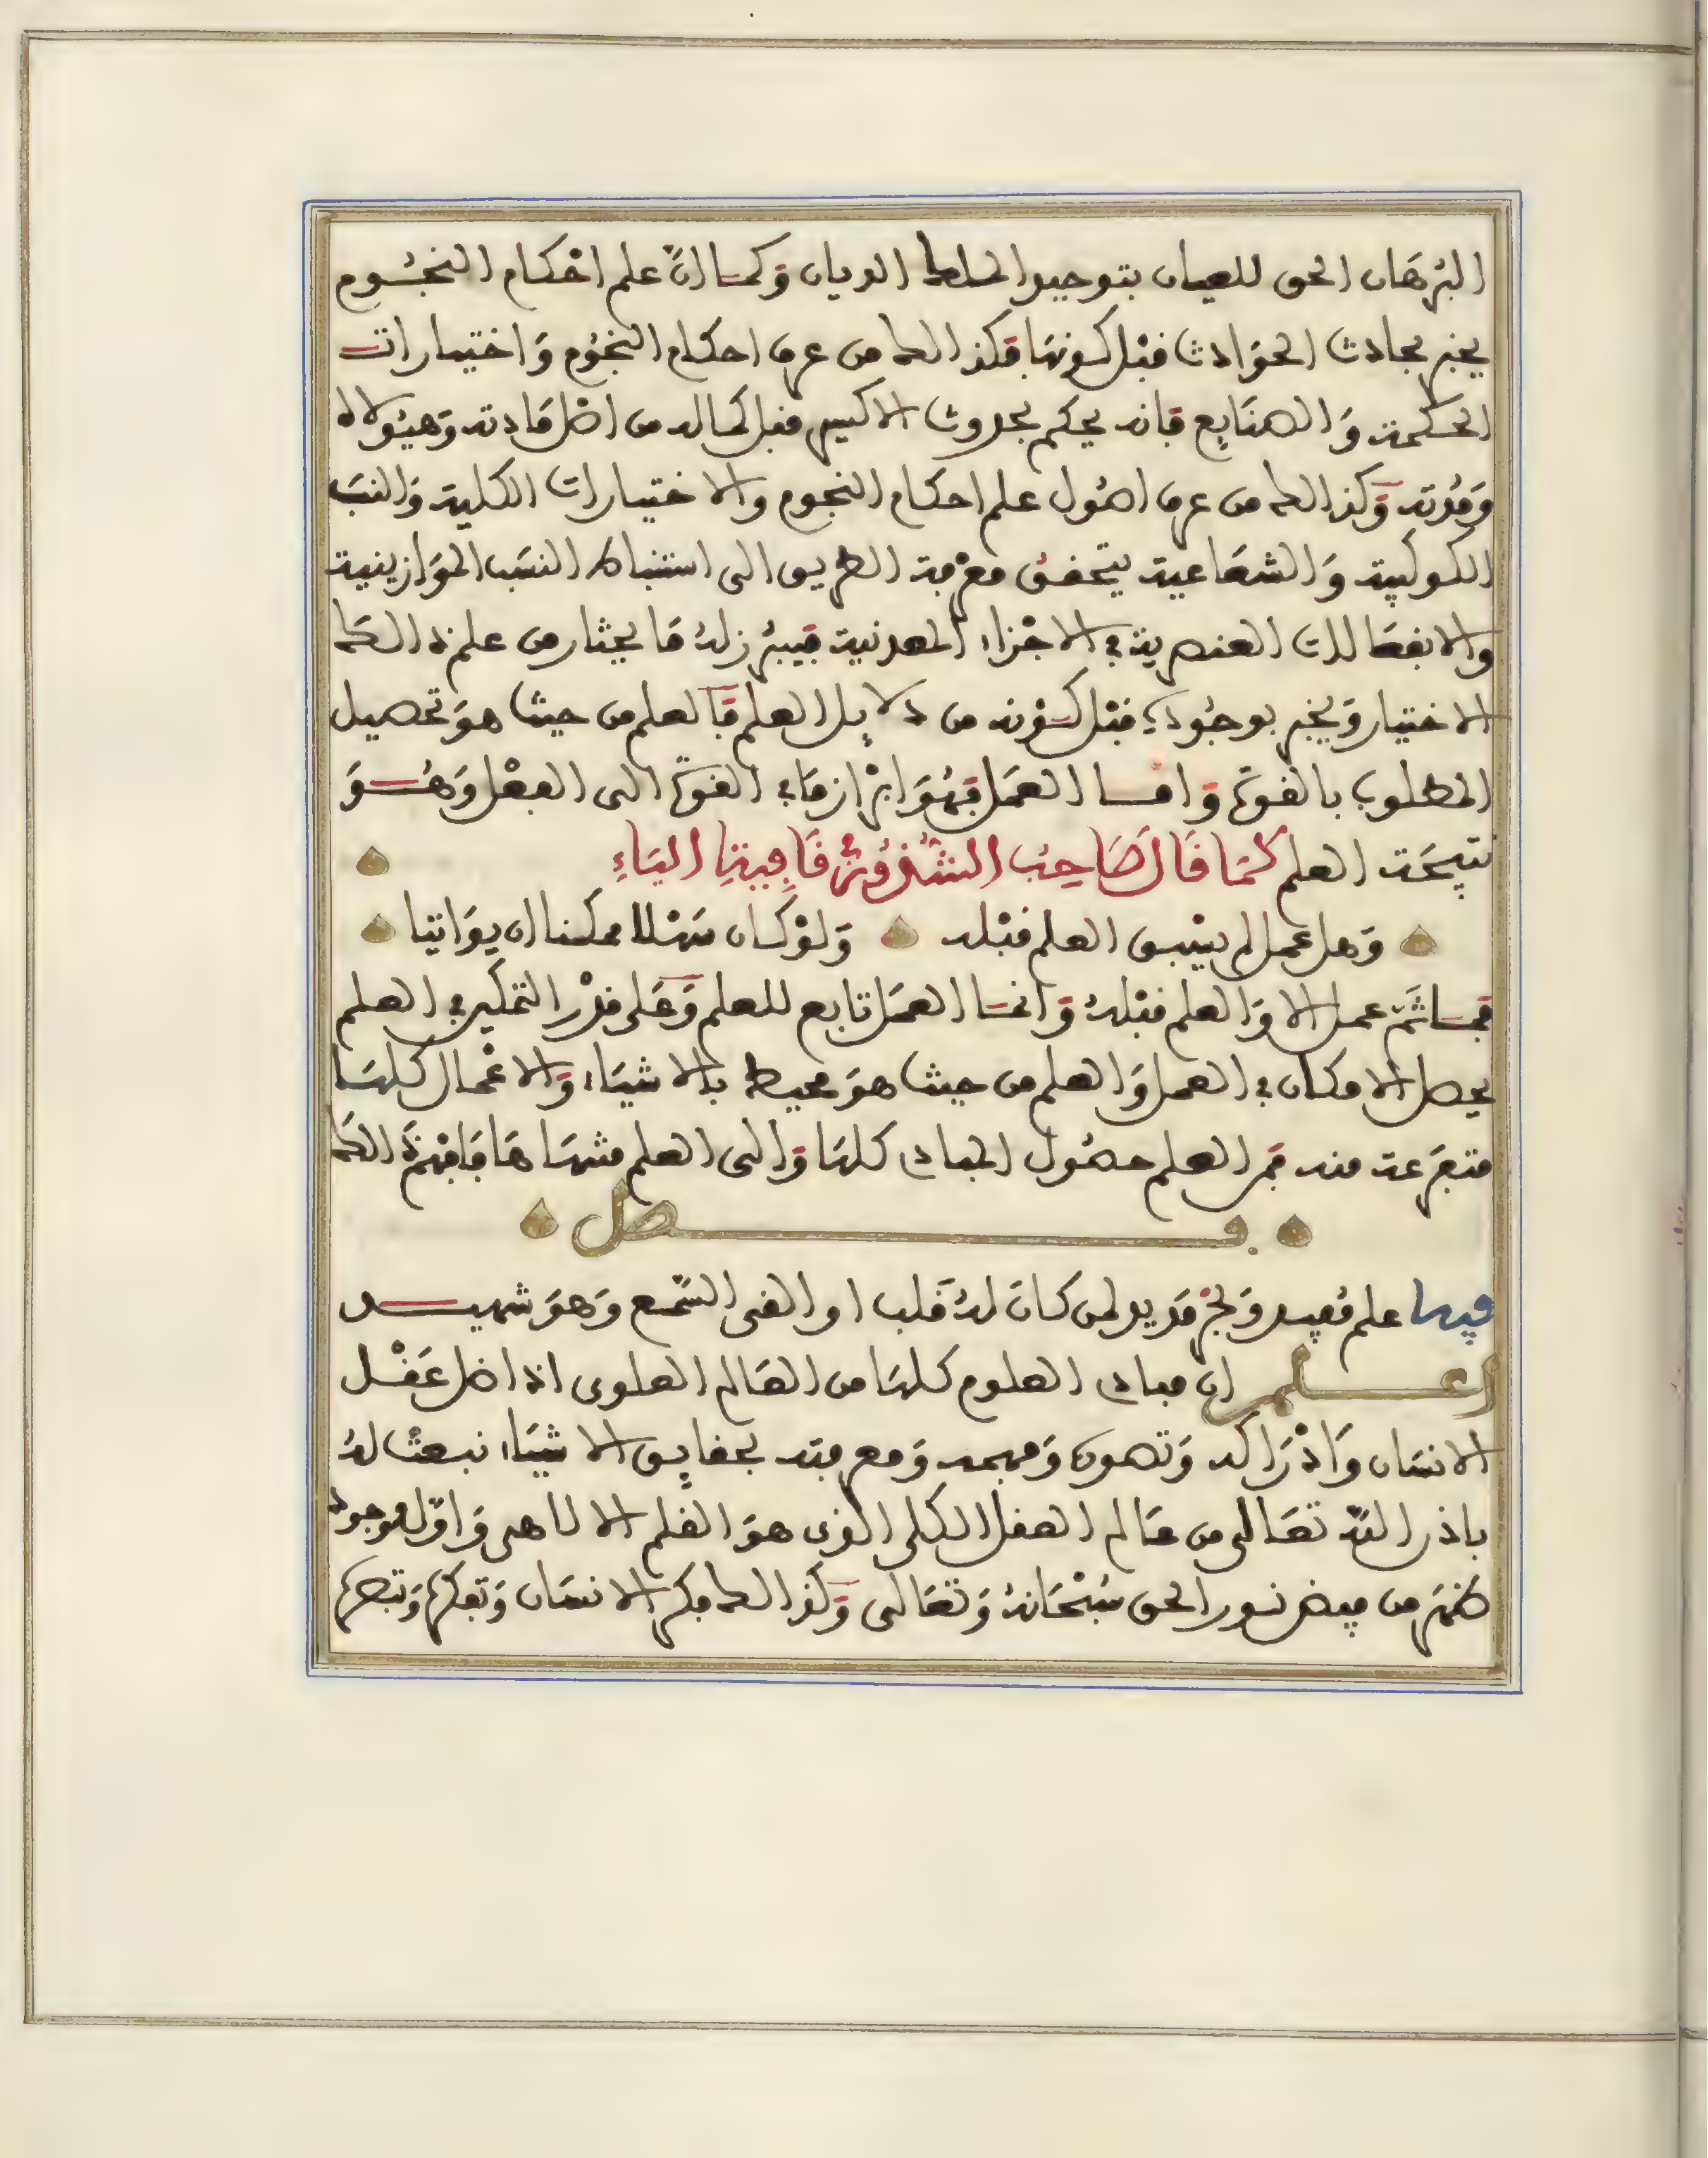 البُرهَان الحق للعيان بتوحيد الملك الديان وَكمَا انّ علم احْكام النجُوم
يخبر بحادث الحوَادث قبْل كونهَا فكذالك من عرف احكام النجُوم وَاختيارات
الحكمة وَالصنَايع فانه يحكم بحدوث الاكسير قبل كماله من اصْل مَادته وَهيُولاه
وَمُدته وَكذالك من عرف اصُول علم احكام النجوم والاختيارات الكلية وَالنسَب
الكوكبية وَالشعَاعية يتحقق معْرفة الطريق الى استنباط النسَب الموَازينية
والانفعَالات العنصرية في الاجْزاء المعدنية فيبرُز لهُ مَا يختار من علم ذالك
الاختيار وَيخبر بوجُوده قبْل كوْنه من دلايل العلم فَالعلم من حيث هوَ تحصيل
المطلوب بالقوة وَامَا العمَل فهُوَ ابْراز مَا في القوة الى الفعْل وَهُوَ
نتيجَة العلم كمَا قَال صَاحِبُ الشذُورِ في قَافِيةِ اليَاءِ
وَهل عمل لم يسْبق العلم قبْله وَلوْ كان سَهْلا ممكنا ان يوَاتيا
فمَا ثَمّ عمل الا وَالعلم قبْلهُ وَانمَا العمَل تابع للعلم وَعَلى قدْر التمكين في العلم
يحصل الامكان في العمل وَالعلم من حيث هوَ محيط بالاشيَاء وَالاعْمال كلهَا
متفرعَة منه فمن العلم حصُول المبادي كلهَا وَالى العلم منتهَاهَا فَافهَمْ ذَالك
فصل
فيها علم مُفيد وَبحْر مَديد لمن كانَ لهُ قلب او القى السّمع وَهوَ شهيد
اعلم انّ مبادي العلوم كلهَا من العَالم العلوي اذ اصْل عَقْل
الانسَان وَادْرَاكه وَتصوره وَفهمه وَمعرفته بحقايق الاشيَاء نبعثْ لهُ
باذن اللّه تعَالى من عَالم العقل الكلي الذي هوَ القلم الالاهي وَاوّل موجود
ظهَر من فيض نور الحق سُبْحَانهُ وَتعَالى وَكذالك فكر الانسَان وَتفكره وَتبصره